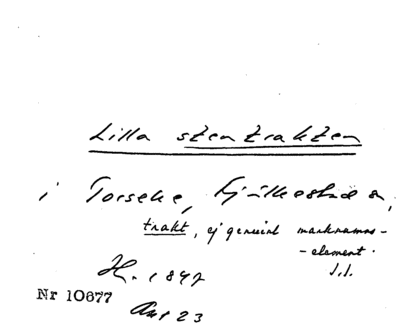 Lilla stentrakten
i Torseke, Fjälkestad sn,
trakt, ej genuint marknamns-
-element.
J.J.
H. 1847
Nr 10677
Akt 23